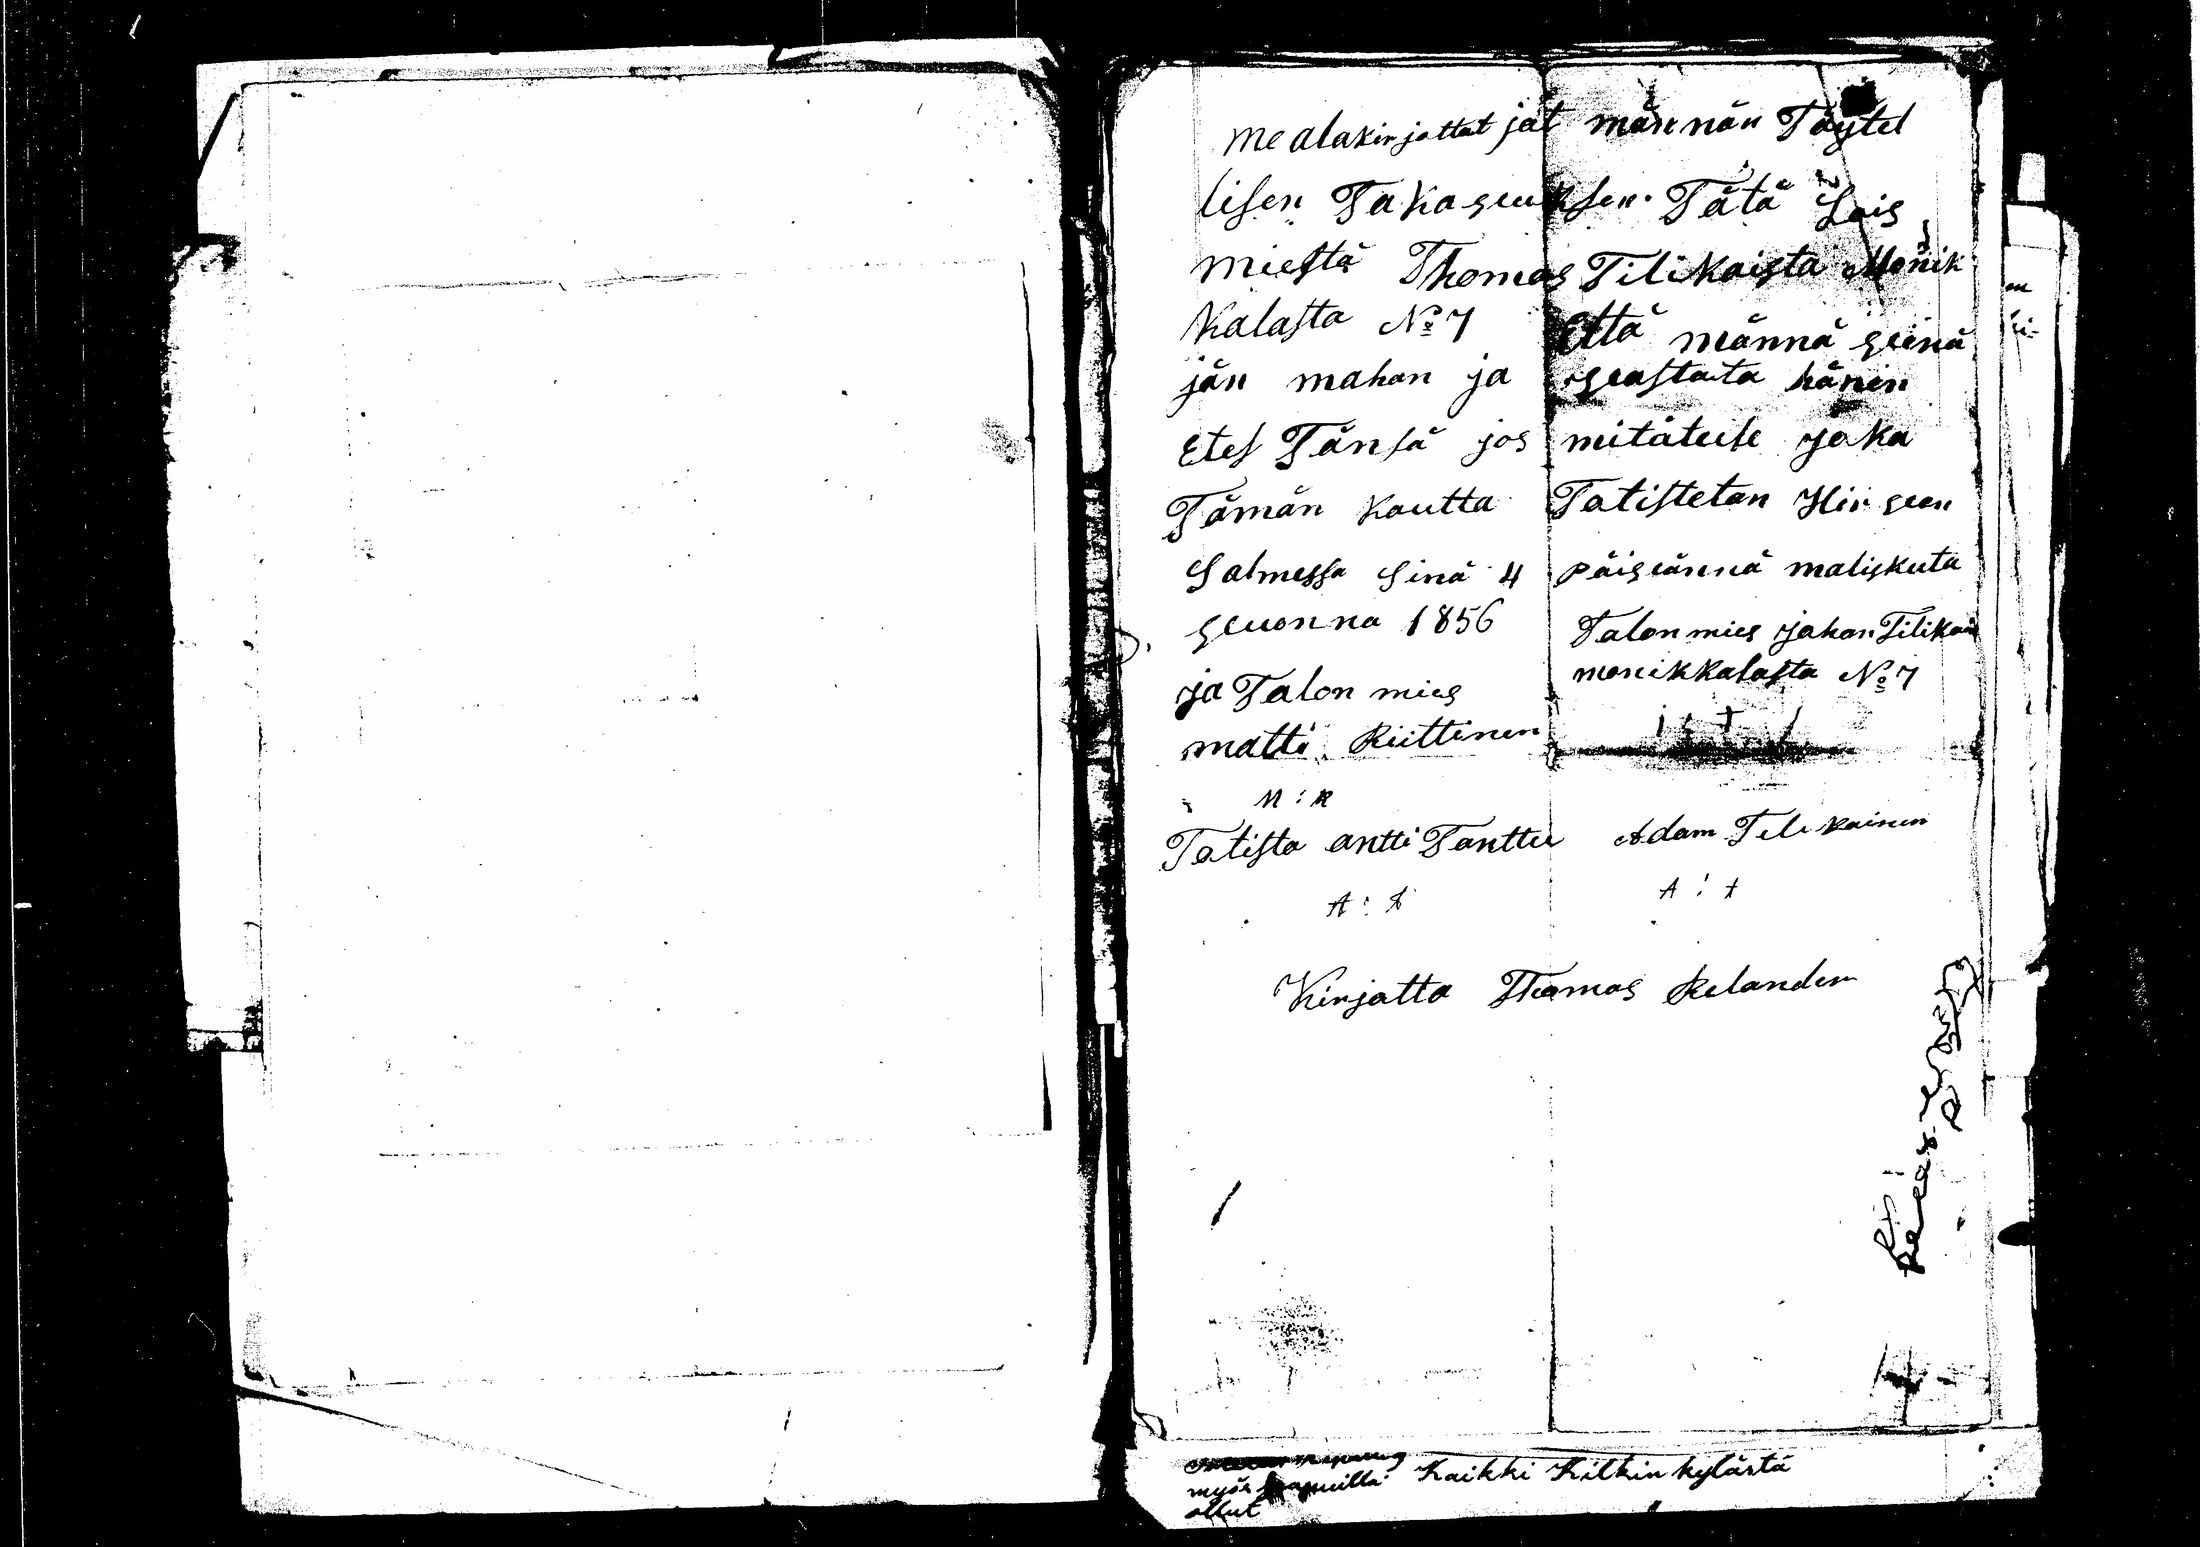 me alakirjottat jat männän Täytel
lisen Takaseuksen. Tätä Lois
miestä Thomas Tilikaista Monik
kalasta No 7 Että männä seinä
jän mahan ja seastata hänen
Etes Tänsä jos mitäteile joka
Tämän kautta Tatistetan Hirseen
Salmessa Sinä 4 päiseännä maliskuta
seuonna 1856 Talon mies johan Tilikain
monikkalasta No 7
ja Talon mies
matti Riittinen
M : R
Tatista antti Tanttu Adam Tilikainen
A : T A : T
Kirjatta Thomas Relander
myös ollut Kaikki Kilkin kylästä